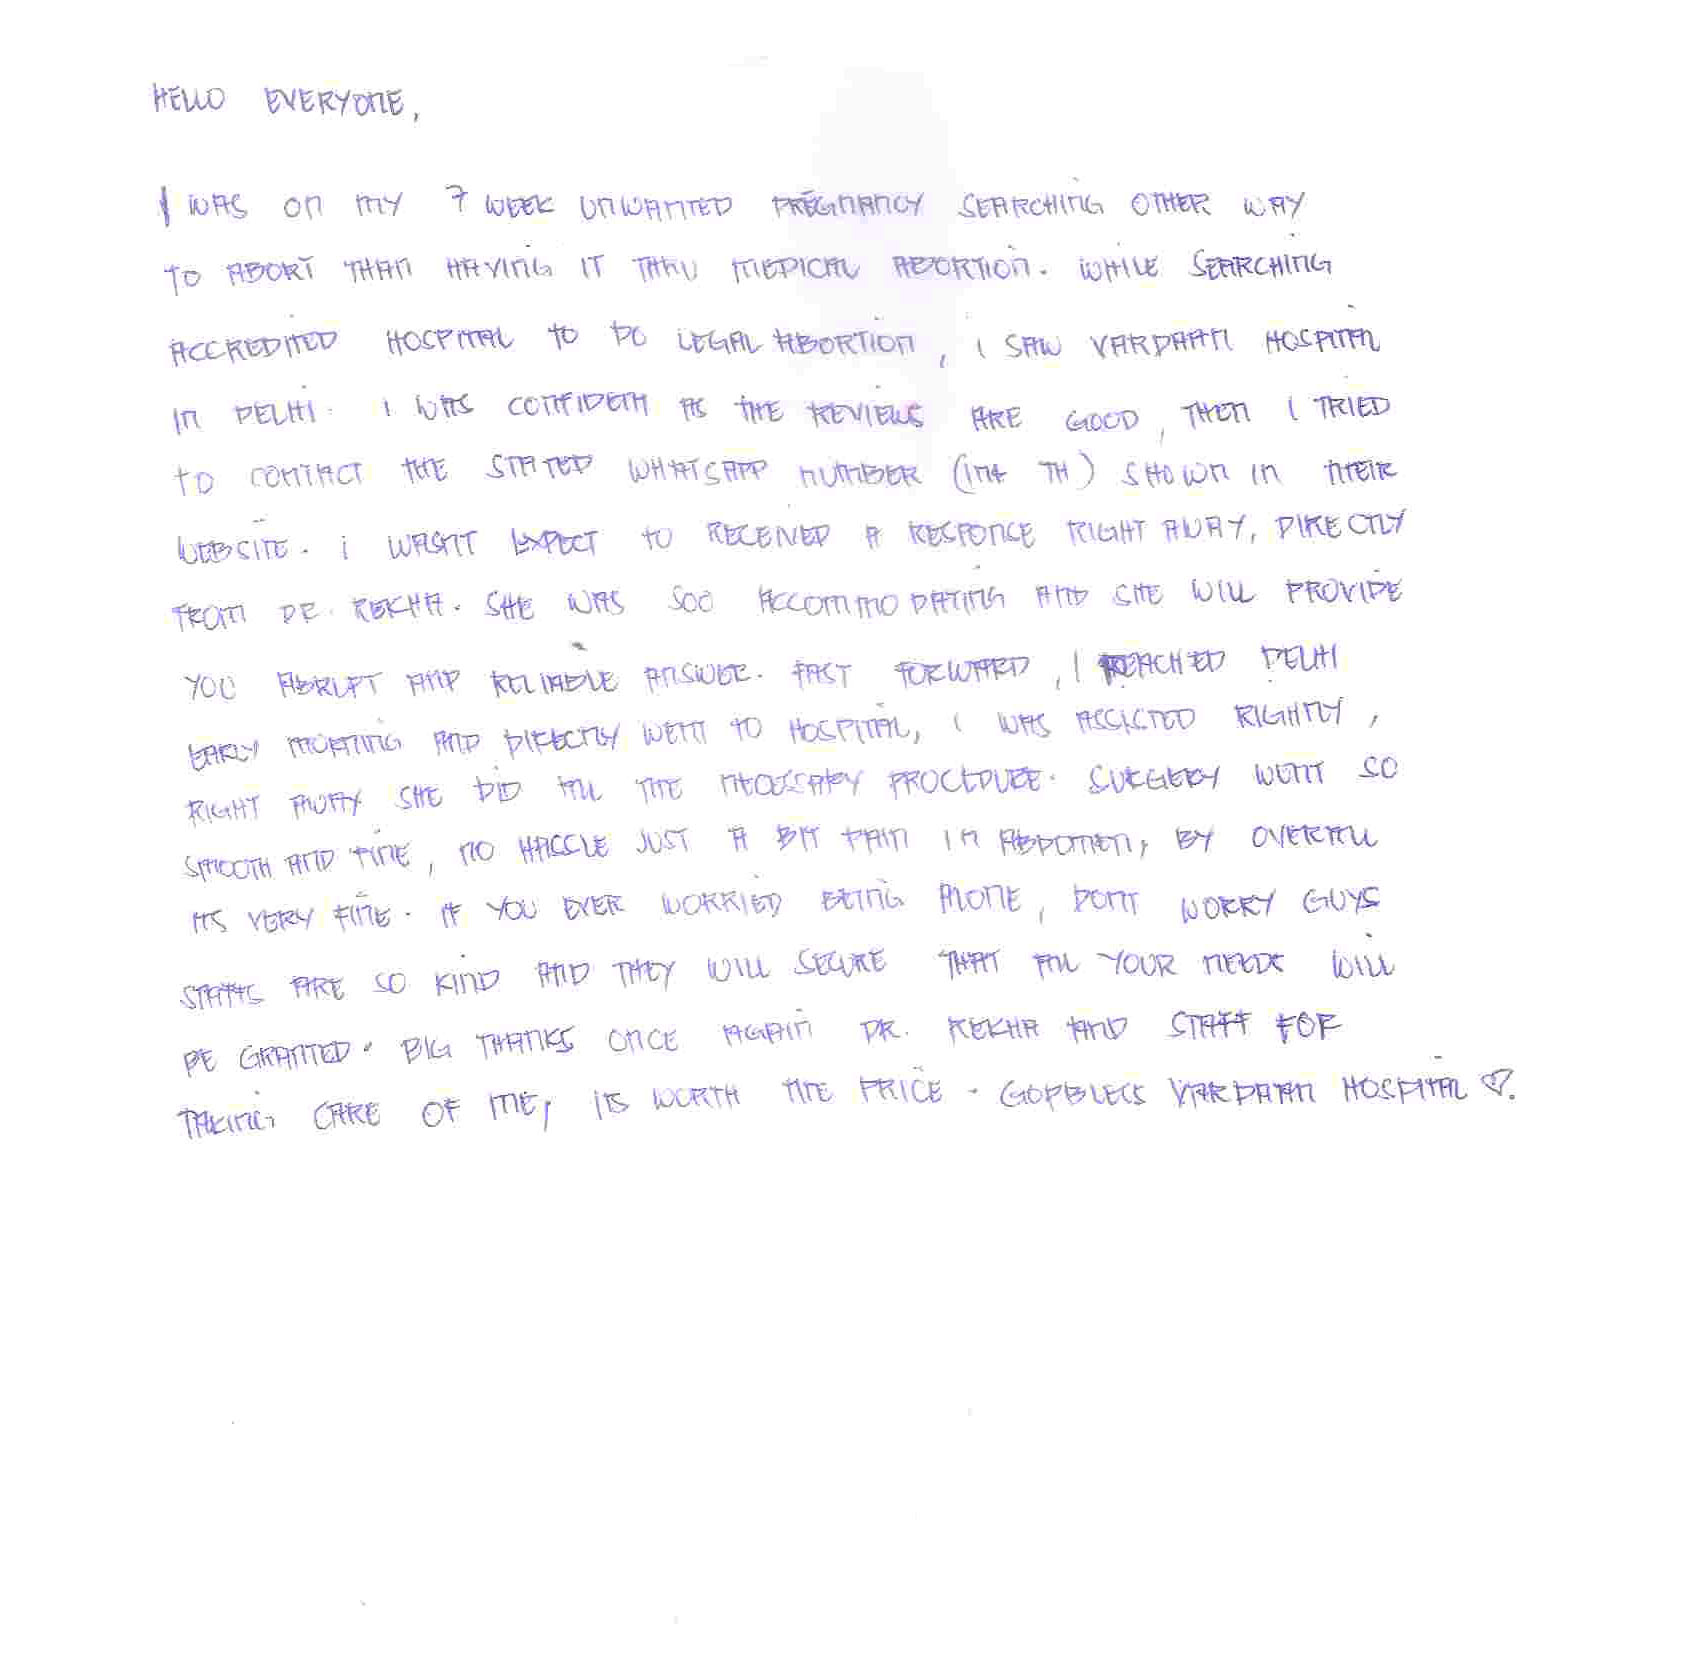 HELLO EVERYONE,
I WAS ON MY 7 WEEK UNWANTED PREGNANCY SEARCHING OTHER WAY
TO ABORT THAN HAVING IT THRU MEDICAL ABORTION. WHILE SEARCHING
ACCREDITED HOSPITAL TO DO LEGAL ABORTION, I SAW VARDAAN HOSPITAL
IN DELHI. I WAS CONFIDENT AS THE REVIEWS ARE GOOD, THEN I TRIED
TO CONTACT THE STATED WHATSAPP NUMBER SHOWN IN THEIR
WEBSITE. I WASNT EXPECT TO RECEIVED A RESPONSE RIGHT AWAY, DIRECTLY
FROM DR. REKHA. SHE WAS SOO ACCOMMODATING AND SHE WILL PROVIDE
YOU ABRUPT AND RELIABLE ANSWER. FAST FORWARD, I REACHED DELHI
EARLY MORNING AND DIRECTLY WENT TO HOSPITAL, I WAS ASSISTED RIGHTLY,
RIGHT AWAY SHE DID ALL THE NECESSARY PROCEDURE. SURGERY WENT SO
SMOOTH AND FINE, NO HASSLE JUST A BIT PAIN IN ABDOMEN, BY OVERALL
ITS VERY FINE. IF YOU EVER WORRIED BEING ALONE, DONT WORRY GUYS
STAFFS ARE SO KIND AND THEY WILL SECURE THAT ALL YOUR NEEDS WILL
BE GRANTED. BIG THANKS ONCE AGAIN DR. REKHA AND STAFF FOR
TAKING CARE OF ME, ITS WORTH THE PRICE. GODBLESS VARDAAN HOSPITAL ♡.